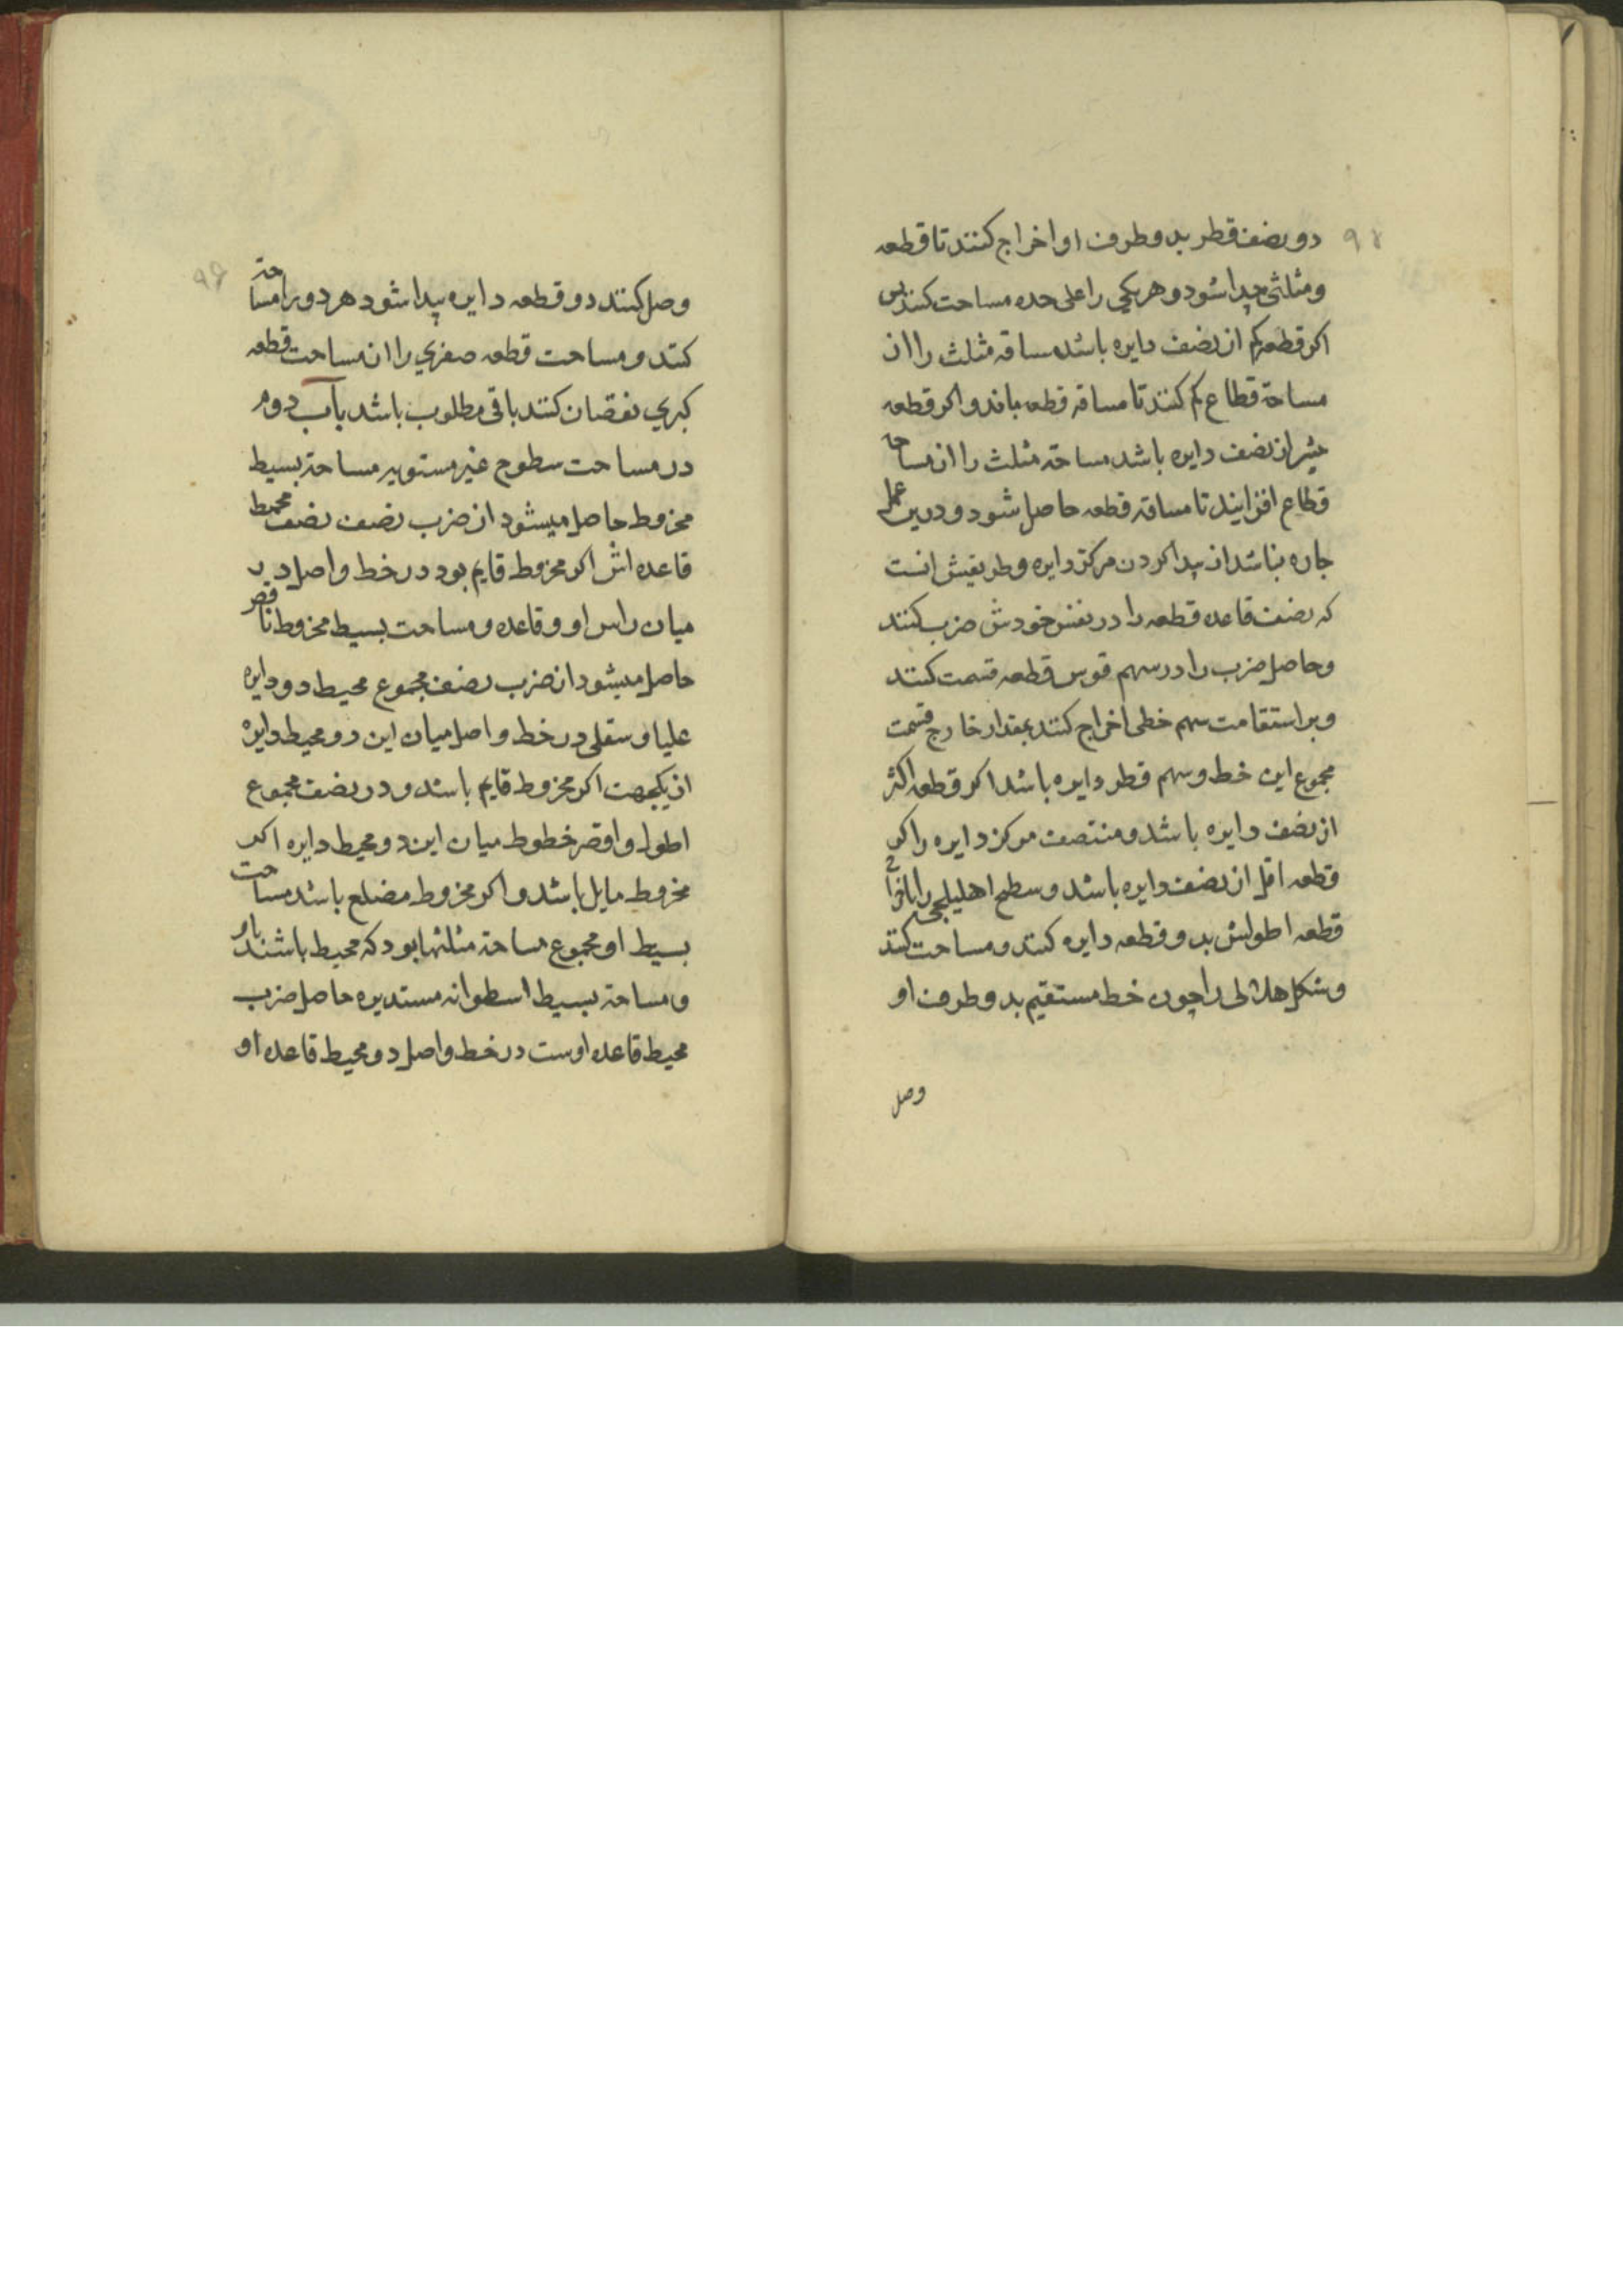 ۹۸
دو نصف قطر بدو طرف او اخراج کنند تا قطعه
و مثلثی پیدا شود و هر یکی را علی حده مساحت کنند پس
اکر قطعه کم از نصف دایره باشد مساقه مثلث را از
مساحة قطاع کم کنند تا مساقه قطعه بماند و اکر قطعه
بیشر از نصف دایره باشد مساحة مثلث را از مساحة
قطاع افزایند تا مساقه قطعه حاصل شود و درین عمل
چاره نباشد از پیدا کردن مرکز دایره و طریقش انست
که نصف قاعده قطعه را در نفس خودش ضرب کنند
و حاصل ضرب را در سهم قوس قطعه قسمت کنند
و بر استقامت سهم خطی اخراج کنند بمقدار خارج قسمت
مجموع این خط و سهم قطر دایره باشد اکر قطعه اکثر
از نصف دایره باشد و منتصف مرکز دایره و اکر
قطعه اقل از نصف دایره باشد و سطح اهلیلجی را باخراج
قطعه اطولش بدو قطعه دایره کنند و مساحت کنند
و شکل هلالی را چون خط مستقیم بدو طرف او
وصل
۹۹
وصل کنند دو قطعه دایره پیدا شود هر دو را مساحة
کنند و مساحت قطعه صغری را از مساحت قطعه
کبری نقصان کنند باقی مطلوب باشد باب دوم
در مساحت سطوح غیر مستویه مساحة بسیط
مخروط حاصل میشود از ضرب نصف نصف محیط
قاعده اش اکر مخروط قایم بود در خط واصل در
میان راس او و قاعده و مساحت بسیط مخروط ناقص
حاصل میشود از ضرب نصف مجموع محیط دو دایره
علیا و سفلی در خط واصل میان این دو محیط دایره
از یکجهت اکر مخروط قایم باشد و در نصف مجموع
اطول و اقصر خطوط میان این دو محیط دایره اکر
مخروط مایل باشد و اکر مخروط مضلع باشد مساحت
بسیط او مجموع مساحة مثلثها بود که محیط باشند باو
و مساحة بسیط اسطوانه مستدیره حاصل ضرب
محیط قاعده اوست در خط واصل دو محیط قاعده او